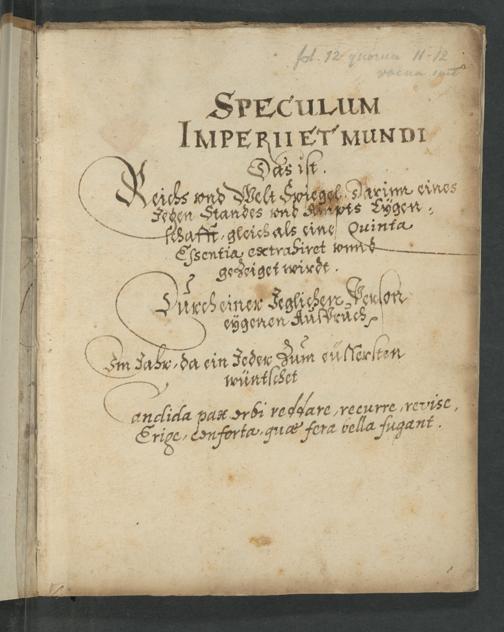 fol. 12 quorum 11-12
vacua sunt
SPECULUM
IMPERII ET MUNDI
Das ist.
Reichs vnd Welt Spiegel, Darinn eines
Jeden Standes vnd Ampts Eygen-
schafft, gleich als eine Quinta
Essentia, extrahiret vnnd
gezeiget wirdt.
Durch einer Jeglichen Person
eygenen Außpruch.
Im Jahr, da ein Jeder Zum eüssersten
wüntschet
Candida pax orbi reddare, recurre, revise,
Erige, conforta, quæ fera bella fugant.